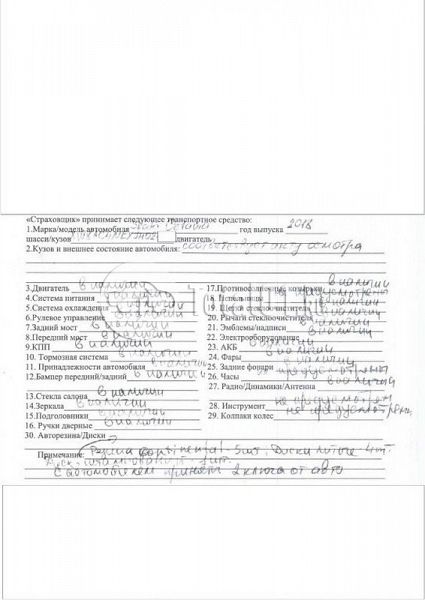 «Страховщик» принимает следующее транспортное средство:
1.Марка/модель автомобиля Skoda Octavia год выпуска 2018
шасси/кузов двигатель
2.Кузов и внешнее состояние автомобиля: соответствует акту осмотра
3.Двигатель в наличии 17.Противосолнечные козырьки в наличии
4.Система питания в наличии 18. Пепельницы не предусмотрены
5.Система охлаждения в наличии 19. Щетки стеклоочистителя в наличии
6.Рулевое управление в наличии 20. Рычаги стеклоочистителя в наличии
7.Задний мост в наличии 21. Эмблемы/надписи в наличии
8.Передний мост в наличии 22. Электрооборудование в наличии
9.КПП в наличии 23. АКБ в наличии
10. Тормозная система в наличии 24. Фары в наличии
11. Принадлежности автомобиля в наличии 25. Задние фонари в наличии
12.Бампер передний/задний в наличии 26. Часы не предусмотрены
27. Радио/Динамики/Антенна в наличии
13.Стекла салона в наличии
14.Зеркала в наличии 28. Инструмент не предусмотрен
15.Подголовники в наличии 29. Колпаки колес не предусмотрены
16. Ручки дверные в наличии
30. Авторезина/Диски
Примечание: Резина continental - 5шт. Диски литые 4шт.
1шт.
С автомобилем приняты 2 ключа от авто